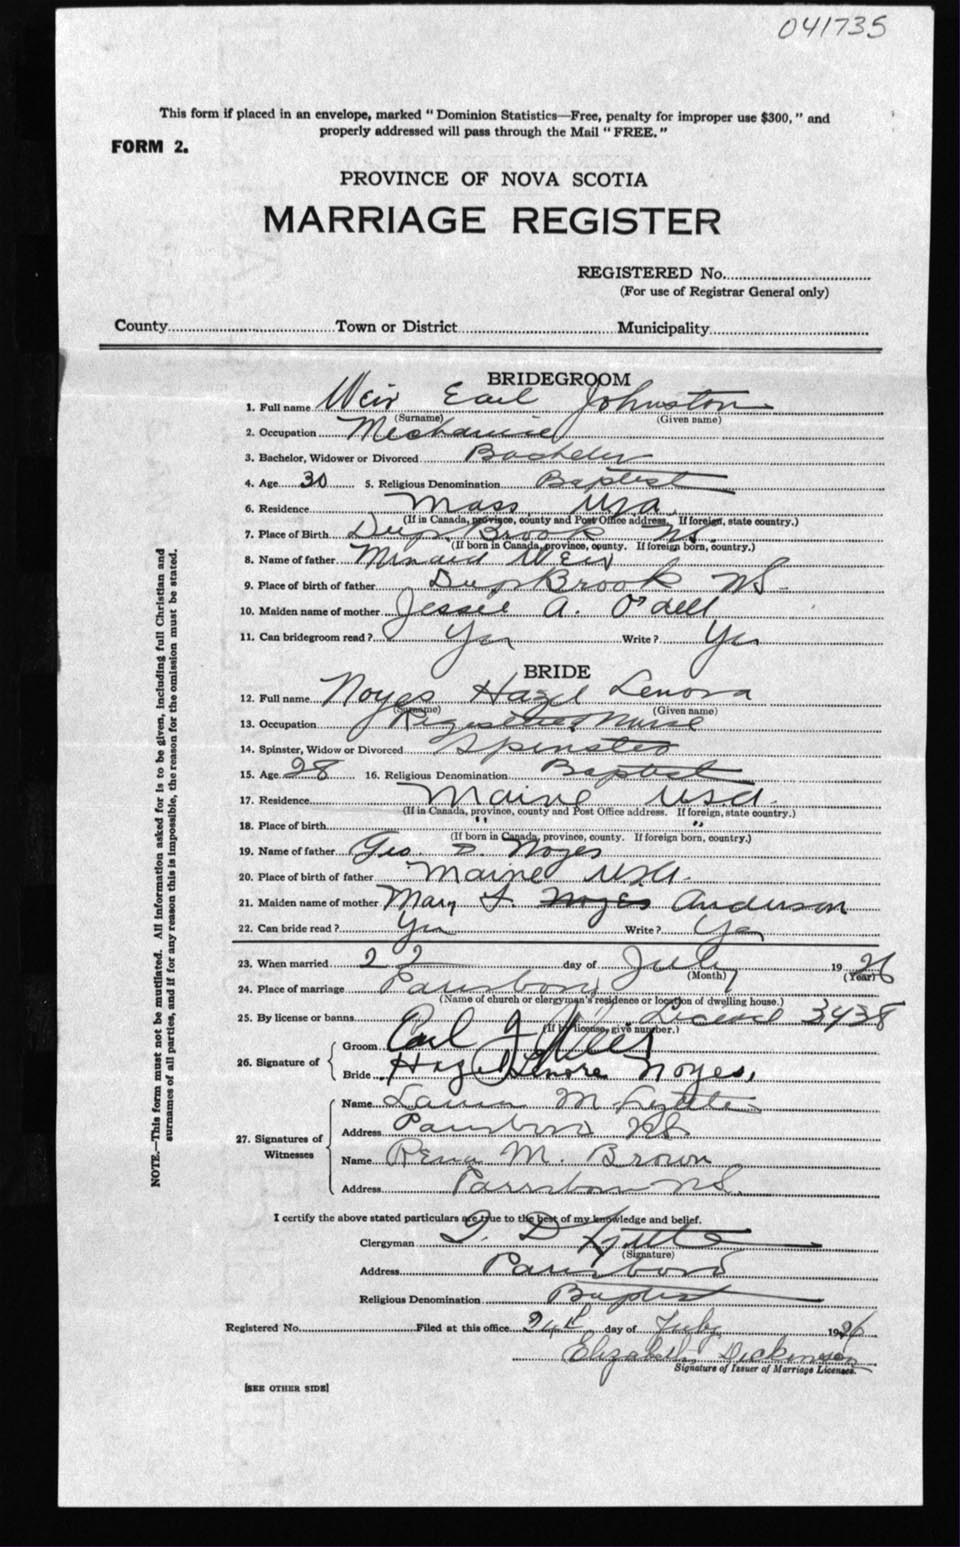 041735
This form if placed in an envelope, marked "Dominion Statistics—Free, penalty for improper use $300," and
properly addressed will pass through the Mail "FREE."
FORM 2.
PROVINCE OF NOVA SCOTIA
MARRIAGE REGISTER
REGISTERED No.
(For use of Registrar General only)
County Town or District Municipality
BRIDEGROOM
1. Full name Weir Earl Johnston
(Surname) (Given name)
2. Occupation Mechanic
3. Bachelor, Widower or Divorced Bachelor
4. Age 30 5. Religious Denomination Baptist
6. Residence Mass USA.
(If in Canada, province, county and Post Office address. If foreign, state country.)
7. Place of Birth Deep Brook NS
(If born in Canada, province, county. If foreign born, country.)
8. Name of father Weir
9. Place of birth of father Deep Brook NS-
10. Maiden name of mother Jessie A. O'dell
11. Can bridegroom read? Yes Write? Yes
BRIDE
12. Full name Noyes Hazel Lenora
(Surname) (Given name)
13. Occupation Registered Nurse
14. Spinster, Widow or Divorced Spinster
15. Age 28 16. Religious Denomination Baptist
17. Residence Maine USA.
(If in Canada, province, county and Post Office address. If foreign, state country.)
18. Place of birth " "
(If born in Canada, province, county. If foreign born, country.)
19. Name of father Geo. D. Noyes
20. Place of birth of father Maine USA.
21. Maiden name of mother Mary F. Noyes Anderson
22. Can bride read? Yes Write? Yes
23. When married 22 day of July 1926
(Month) (Year)
24. Place of marriage Parrsboro
(Name of church or clergyman's residence or location of dwelling house.)
25. By license or banns License 3438
(If by license, give number.)
26. Signature of
Groom Earl J Weir
Bride Hazel Lenore Noyes.
27. Signatures of Witnesses
Name Laura M Lyttle
Address Parrsboro NS
Name Rena M. Brown
Address Parrsboro NS.
I certify the above stated particulars are true to the best of my knowledge and belief.
Clergyman D Lyttle
(Signature)
Address Parrsboro
Religious Denomination Baptist
Registered No. Filed at this office 24th day of July 1926
Elizabeth Dickinson
Signature of Issuer of Marriage Licenses.
[SEE OTHER SIDE]
NOTE.—This form must not be mutilated. All information asked for is to be given, including full Christian and
surnames of all parties, and if for any reason this is impossible, the reason for the omission must be stated.